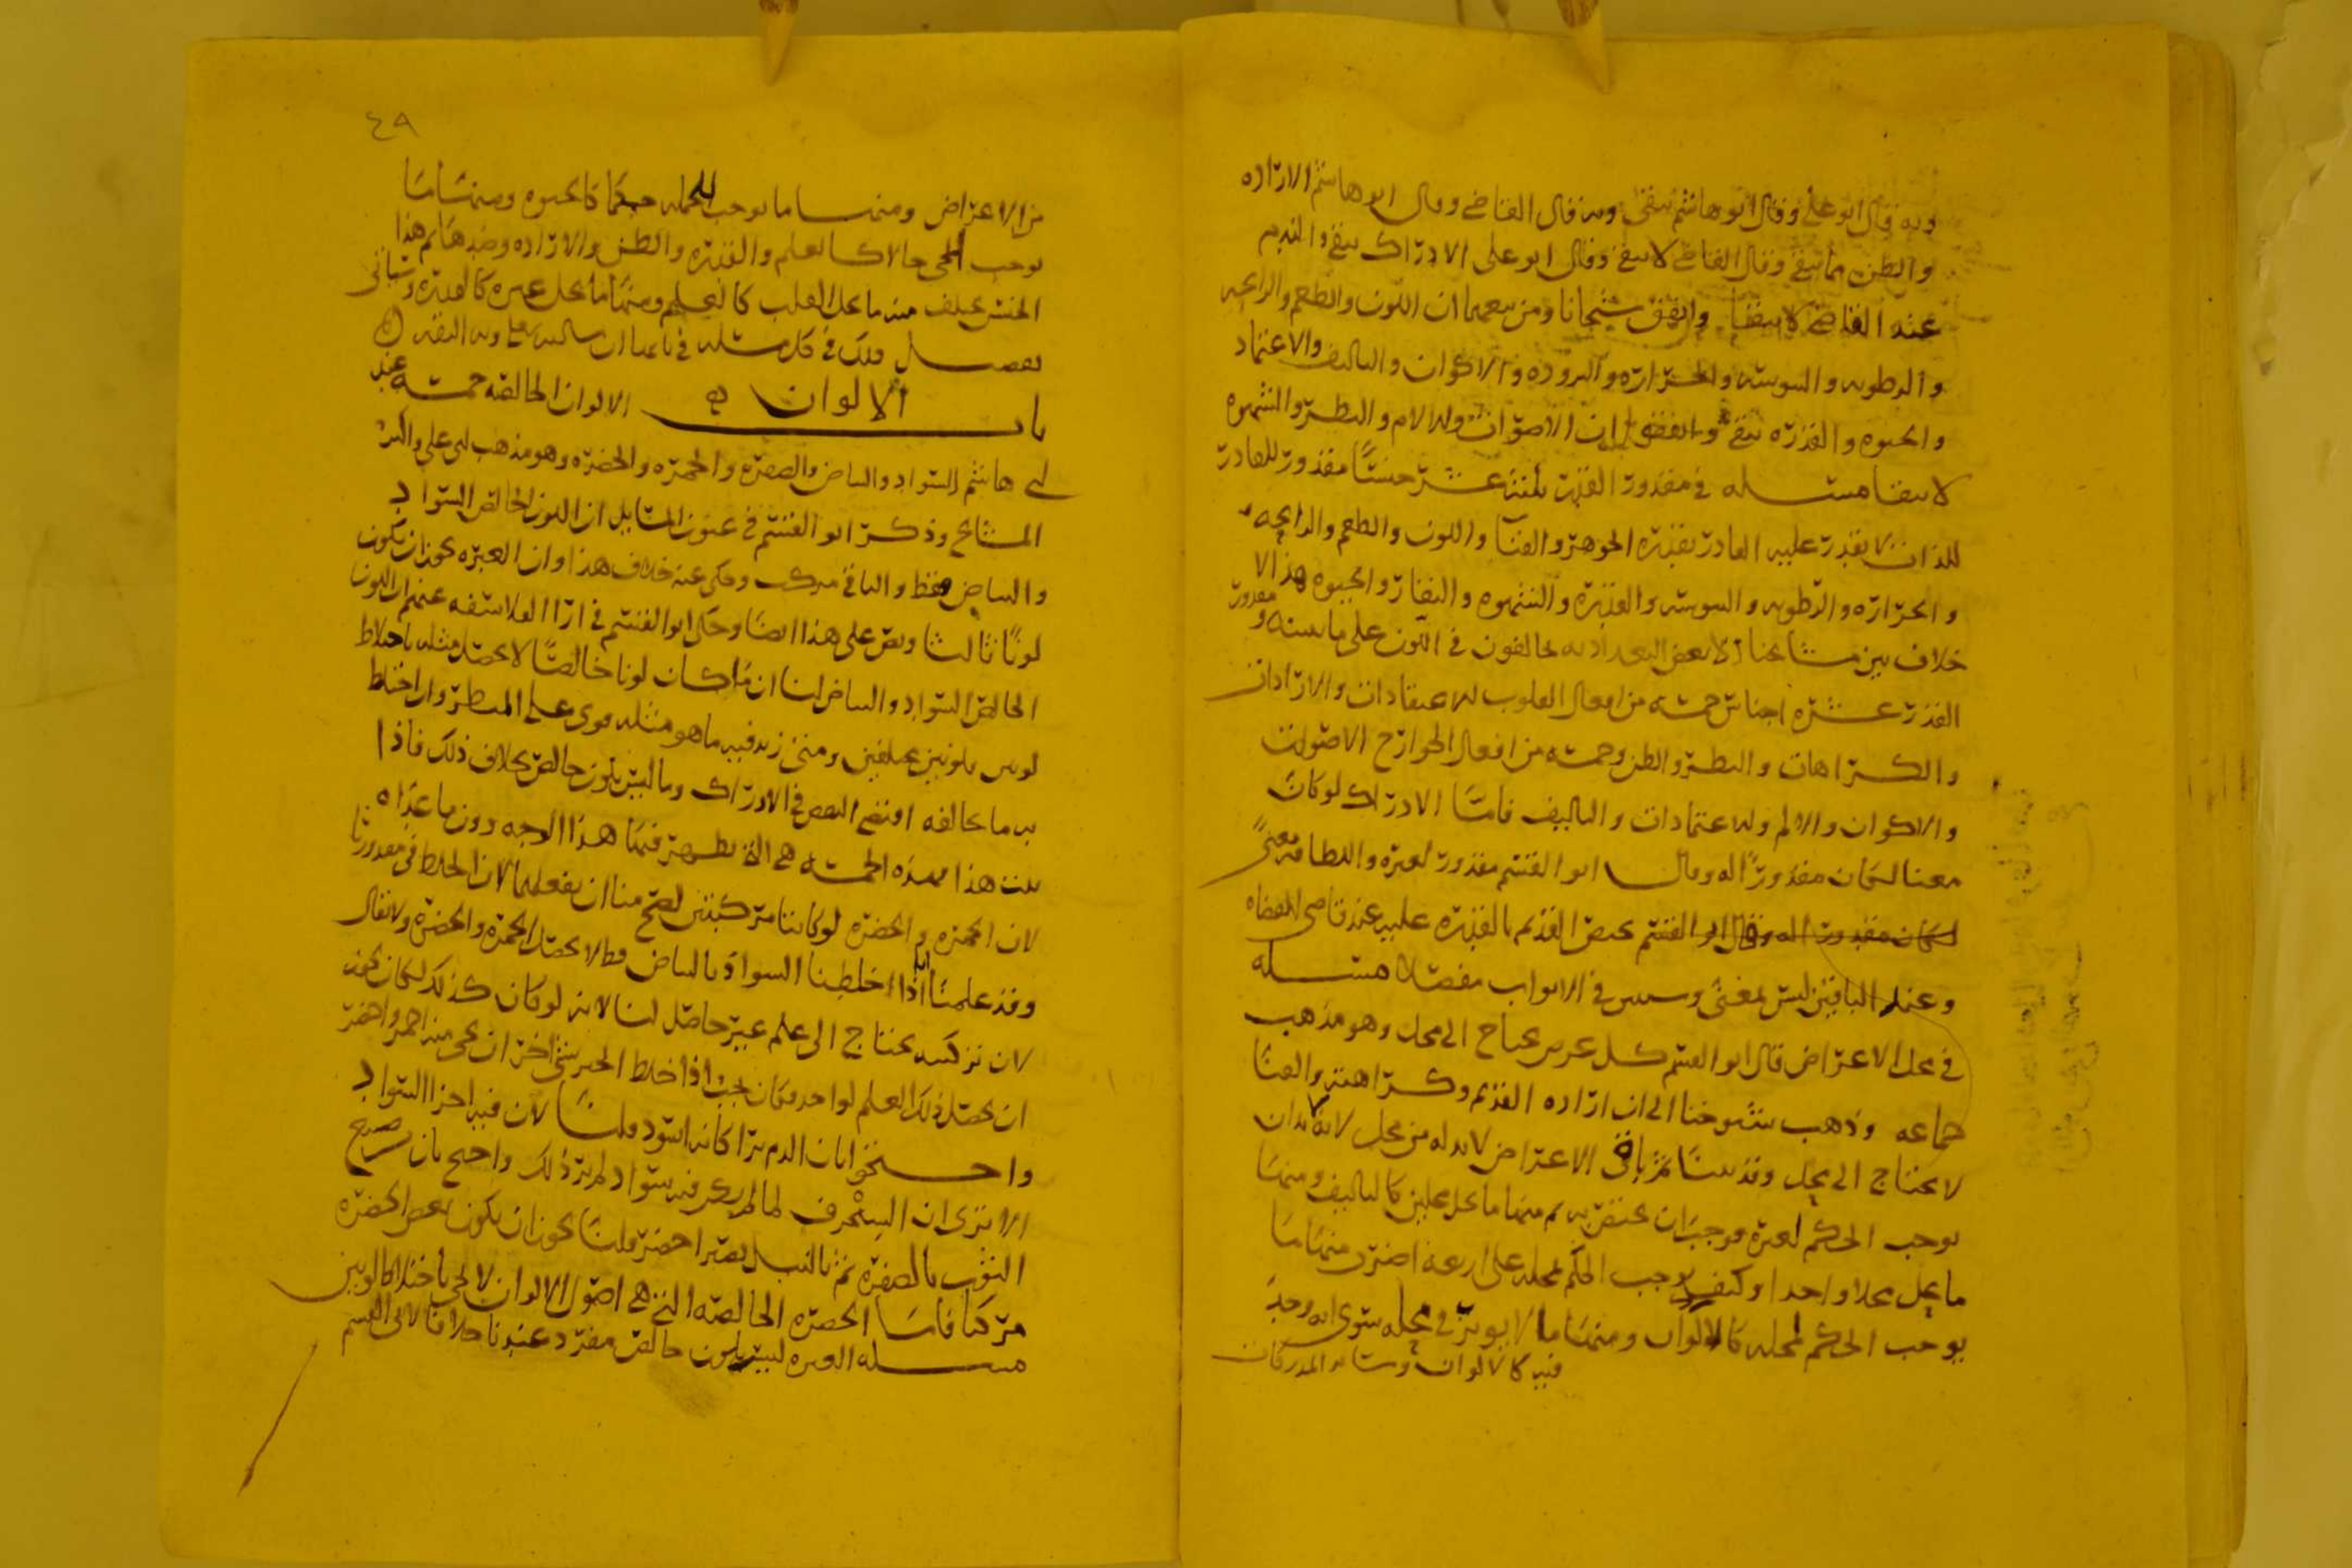 وبه قال ابو علي وقال ابو هاشم يبقى وبه قال القاضي وقال ابو هاشم الارادة
والظن مما يبقى وقال القاضي لا يبقى وقال ابو علي الادراك يبقى والندم
عند القاضي لا يبقيا واتفق شيخانا ومن تبعهما ان اللون والطعم والرائحه
والرطوبه واليبوسه والحراره والبروده والاكوان والتاليف والاعتماد
والحيوه والقدره يبقى واتفقوا ان الاصوات والالام والنظر والشهوه
لا يبقا مسئله في مقدور القدر ثلثه عشر جنسًا مقدور للقادر
للذات لا يقدر عليه القادر بقدره الجوهر والفنا واللون والطعم والرايحه
والحراره والرطوبه واليبوسه والقدره والشهوه والنفار والحيوه هذا لا
خلاف بين مشائخنا الا بعض البغداديه يخالفون في اللون على ما نبينه ومقدور
القدر عشره اجناس خمسه من افعال القلوب الاعتقادات والارادات
والكراهات والنظر والظن وخمسه من افعال الجوارح الاصوات
والاكوان والالم والاعتمادات والتاليف فاما الادراك لو كان
معنا لكان مقدورًا له وقال ابو القسم مقدور لغيره واللطافه معنىً
لكان مقدور اله وقال ابو القسم يختص القديم بالقدره عليه عند قاضي القضاه
وعند الباقين ليس بمعنى وسيبين في الابواب مفصلا مسئله
في محل الاعراض قال ابو القسم كل عرض يحتاج الى محل وهو مذهب
جماعه وذهب شيوخنا الى ان اراده القديم وكراهته والفنا
لا يحتاج الى محل وقد بينا ثم باقي الاعراض لا بد له من محل لانه لا بد ان
يوجب الحكم لغيره فوجب ان يختص به ثم منها ما يحل محلين كالتاليف ومنها
ما يحل محلا واحدا وكيف يوجب الحكم لمحله على اربعه اضرب منها ما
يوجب الحكم لمحله كالالوان ومنها ما لا يوثر في محله سوى انه وجد
فيه كالالوان وسائر المدركات
٤٩
من الاعراض ومنها ما يوجب للجمله حكما كالحيوه ومنها ما
يوجب للحي حالا كالعلم والقدره والظن والاراده وضدهما ثم هذا
الجنس يختلف منه ما يحل القلب كالعلم ومنها ما يحل غيره كالقدره وسياتى
تفصيل ذلك في كل مسئله في بابها ان شا الله تعلى وبه الثقه
باب الالوان الالوان الخالصه خمسه عند
ابي هاشم السواد والبياض والصفره والحمره والخضره وهو مذهب ابي علي واكثر
المشائخ وذكر ابو القسم في عيون المسايل ان اللون الخالص السواد
والبياض فقط والباقي مركب وحكى عنه خلاف هذا وان الغبره يجوز ان تكون
لونًا ثالثا ونص على هذا ايضا وحكى ابو القسم في ارا الفلاسفه عنهم ان اللون
الخالص السواد والبياض لنا ان ما كان لونا خالصًا لا يحصل مثله باختلاط
لونين بلونين مختلفين ومتى زيد فيه ما هو مثله قوي على المنظر وان اختلط
به ما خالفه اوقع النقص في الادراك وما ليس بلون خالص بخلاف ذلك فاذا
ثبت هذا فهذه الخمسه هي التي يظهر فيها هذا الوجه دون ما عداه
لان الحمره والخضره لو كانتا مركبتين لصح منا ان نفعلهما لان الخلط في مقدورنا
وقد علمنا انا اذا اخلطنا السواد بالبياض قط لا يحصل الحمره والخضره ولا يقال
لان تركيبه يحتاج الى علم غير حاصل لنا لانه لو كان كذلك لكان يجوز
ان يحصل ذلك العلم لواحد وكان يجب اذا خلط الحبر بشي اخر ان يجي منه احمر واخضر
واحتجوا بان الدم يرا كانه اسود قلنا لان فيه اجزا السواد
الا ترى ان السنجرف لما لم يكن فيه سواد لم ير ذلك واحتج بان صبغ
الثوب بالصفره ثم بالنيل يصير اخضر قلنا يجوز ان يكون بعض الخضره
مركبا فاما الخضره الخالصه التي هي اصول الالوان لا تجي باختلاط لونين
مسئله الغبره ليس بلون خالص مفرد عندنا خلافا لابي القسم